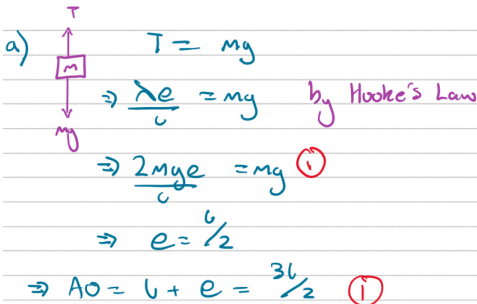 T
a) T = mg
m
⇒ λe/l = mg by Hooke's Law
mg
⇒ 2mge/l = mg ①
⇒ e = l/2
⇒ AO = l + e = 3l/2 ①